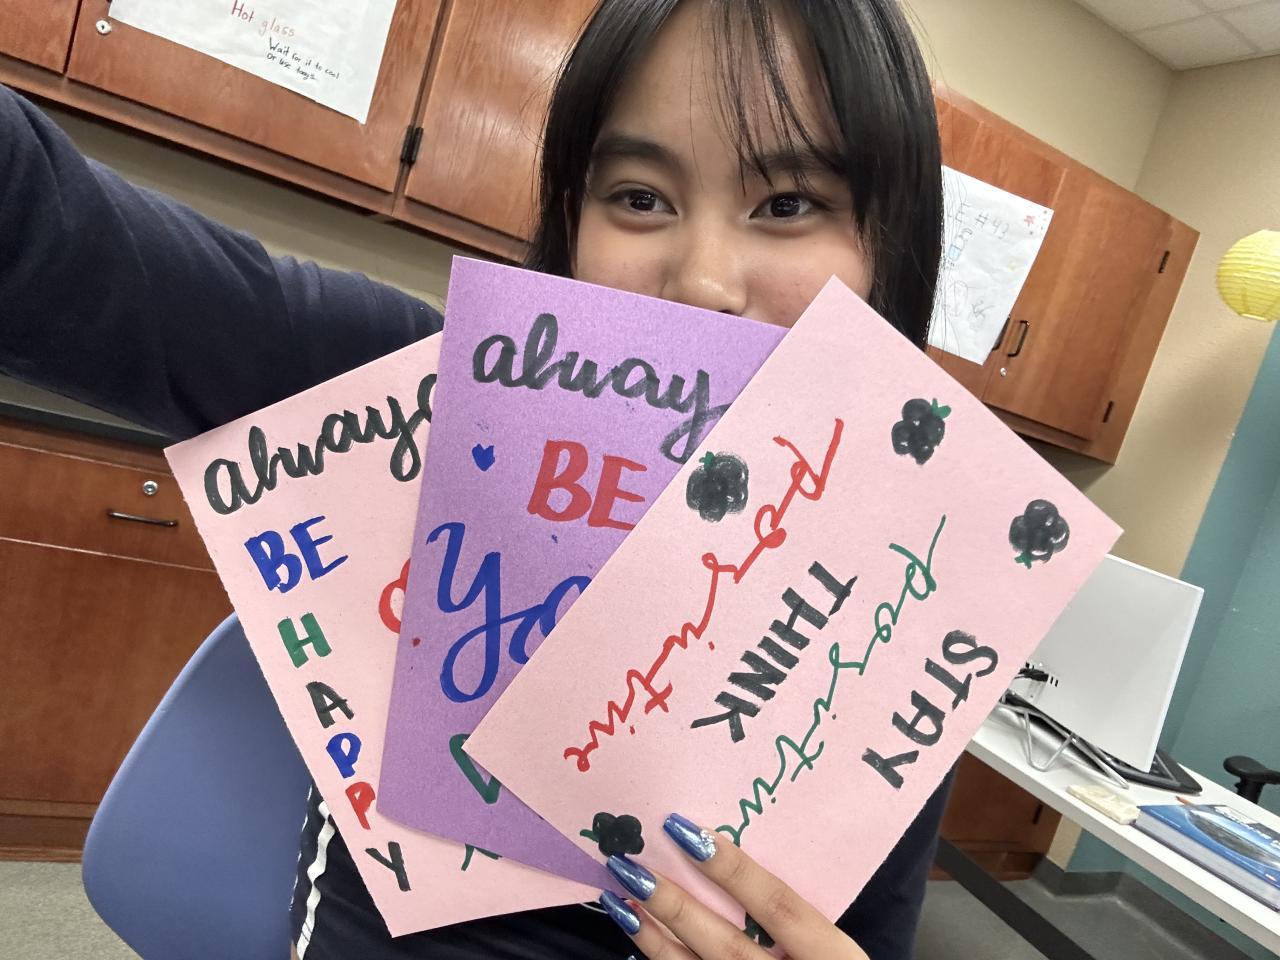 Hot glass
Wait for it to cool
or use tongs
always
BE
HAPPY
always
BE
positive
THINK
positive
STAY